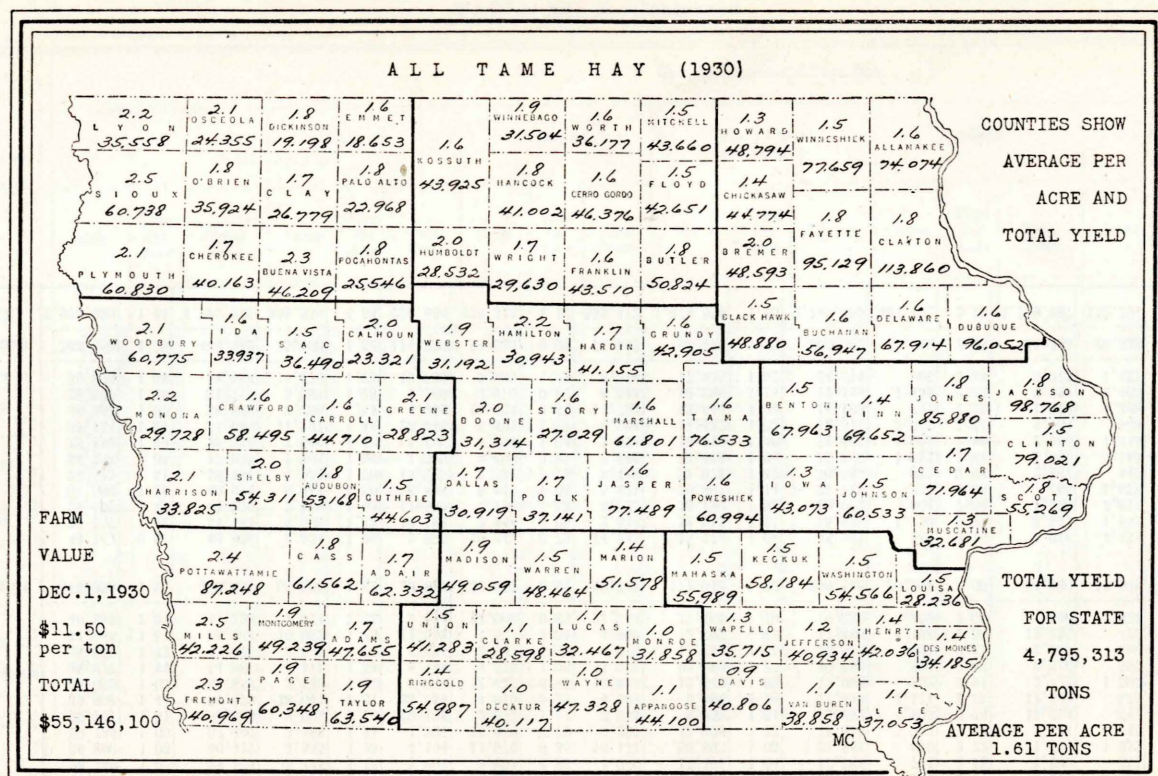 ALL TAME HAY (1930)
COUNTIES SHOW
AVERAGE PER
ACRE AND
TOTAL YIELD
2.2
LYON
35,558
2.1
OSCEOLA
24.355
1.8
DICKINSON
19.198
1.6
EMMET
18.653
1.6
KOSSUTH
43,925
1.9
WINNEBAGO
31.504
1.6
WORTH
36.177
1.5
MITCHELL
43.660
1.3
HOWARD
48,794
1.5
WINNESHIEK
77.659
1.6
ALLAMAKEE
74.074
2.5
SIOUX
60.738
1.8
O'BRIEN
35,924
1.7
CLAY
26.779
1.8
PALO ALTO
22,968
1.8
HANCOCK
41.002
1.6
CERRO GORDO
46.376
1.5
FLOYD
42.651
1.4
CHICKASAW
44.774
1.8
FAYETTE
95.129
1.8
CLAYTON
113.860
2.1
PLYMOUTH
60.830
1.7
CHEROKEE
40.163
2.3
BUENA VISTA
46.209
1.8
POCAHONTAS
25,546
2.0
HUMBOLDT
28.532
1.7
WRIGHT
29,630
1.6
FRANKLIN
43.510
1.8
BUTLER
50.824
2.0
BREMER
48.593
2.1
WOODBURY
60,775
1.6
IDA
33.937
1.5
SAC
36.490
2.0
CALHOUN
23.321
1.9
WEBSTER
31.192
2.2
HAMILTON
30,943
1.7
HARDIN
41.155
1.6
GRUNDY
42,905
1.5
BLACK HAWK
48.880
1.6
BUCHANAN
56,947
1.6
DELAWARE
67.914
1.6
DUBUQUE
96.052
2.2
MONONA
29.728
1.6
CRAWFORD
58.495
1.6
CARROLL
44.710
2.1
GREENE
28.823
2.0
BOONE
31,314
1.6
STORY
27.029
1.6
MARSHALL
61.801
1.6
TAMA
76.533
1.5
BENTON
67.963
1.4
LINN
69.652
1.8
JONES
85.880
1.8
JACKSON
98.768
1.5
CLINTON
79.021
2.1
HARRISON
33.825
2.0
SHELBY
54,311
1.8
AUDUBON
53.168
1.5
GUTHRIE
44.603
1.7
DALLAS
30.919
1.7
POLK
37.141
1.6
JASPER
77.489
1.6
POWESHIEK
60.994
1.3
IOWA
43.073
1.5
JOHNSON
60.533
1.7
CEDAR
71.964
1.8
SCOTT
55.269
1.3
MUSCATINE
32.681
2.4
POTTAWATTAMIE
87.248
1.8
CASS
61.562
1.7
ADAIR
62.332
1.9
MADISON
49.059
1.5
WARREN
48.464
1.4
MARION
51.578
1.5
MAHASKA
55,989
1.5
KEOKUK
58.184
1.5
WASHINGTON
54.566
1.5
LOUISA
28.236
2.5
MILLS
42.226
1.9
MONTGOMERY
49.239
1.7
ADAMS
47.655
1.5
UNION
41.283
1.1
CLARKE
28,598
1.1
LUCAS
32.467
1.0
MONROE
31.858
1.3
WAPELLO
35.715
1.2
JEFFERSON
40.934
1.4
HENRY
42.036
1.4
DES MOINES
34.185
2.3
FREMONT
40,969
1.9
PAGE
60,348
1.9
TAYLOR
63.540
1.4
RINGGOLD
54.987
1.0
DECATUR
40.117
1.0
WAYNE
47.328
1.1
APPANOOSE
44.100
0.9
DAVIS
40.806
1.1
VAN BUREN
38.858
1.1
LEE
37.053
FARM
VALUE
DEC.1,1930
$11.50
per ton
TOTAL
$55,146,100
TOTAL YIELD
FOR STATE
4,795,313
TONS
AVERAGE PER ACRE
1.61 TONS
MC